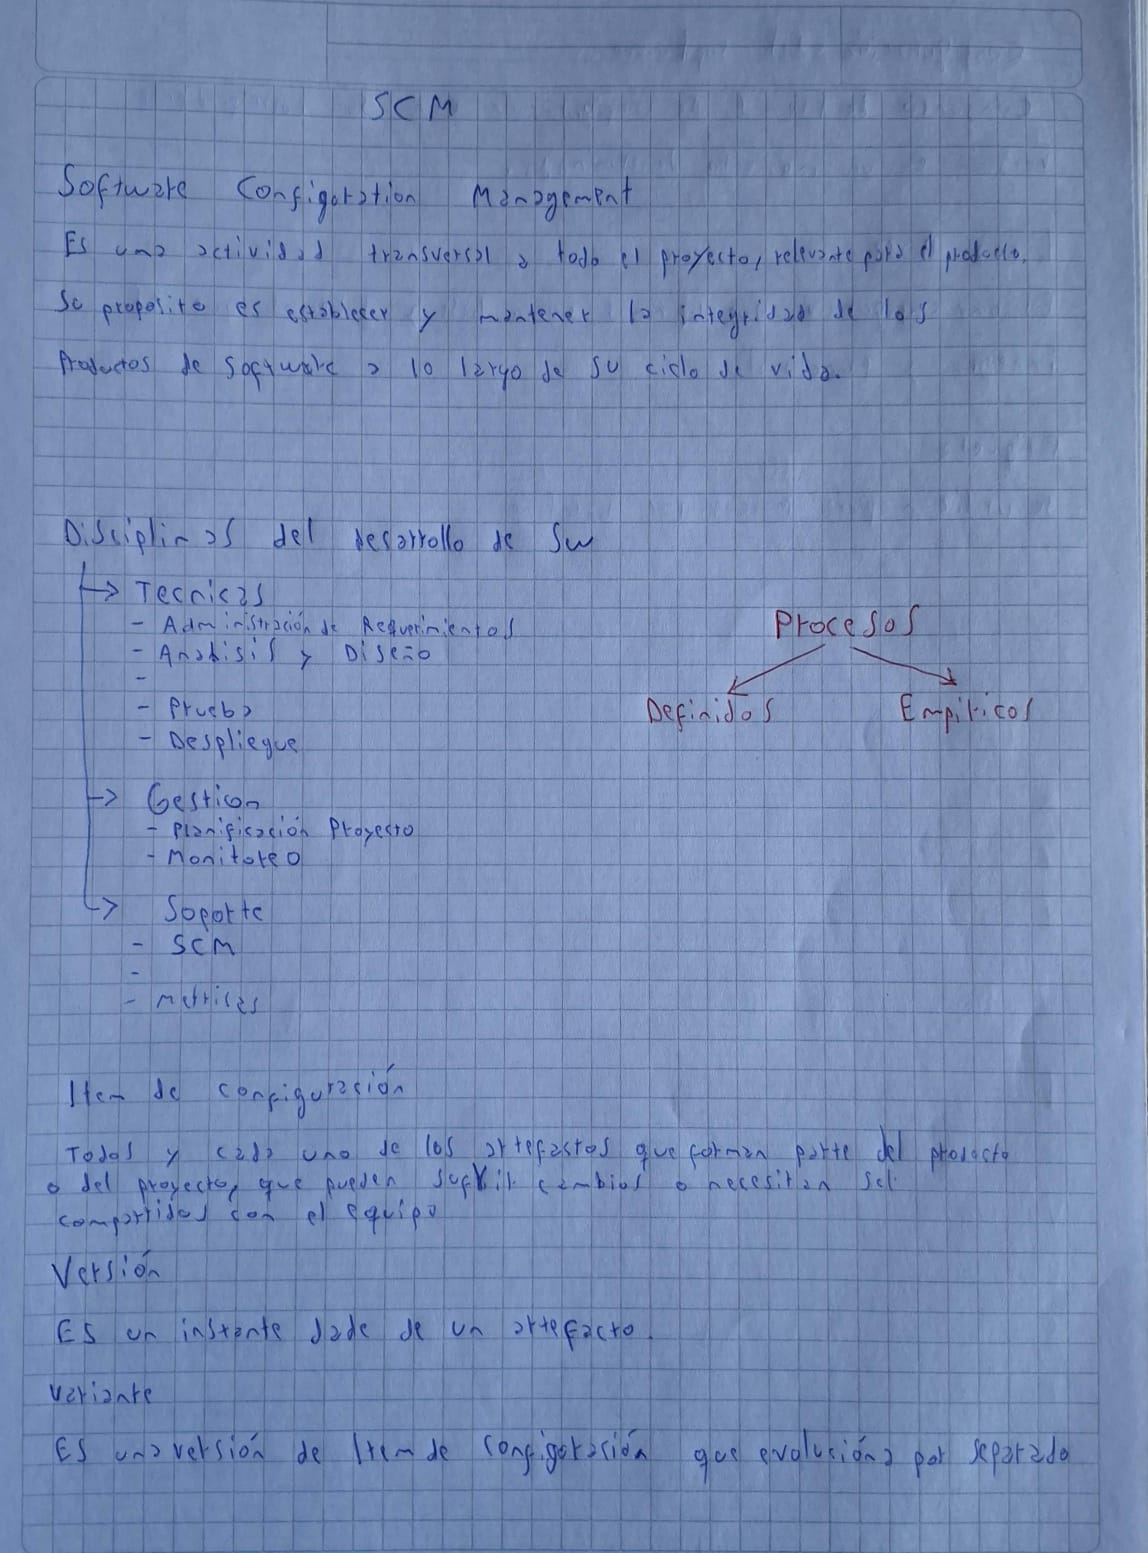 SCM
Software Configuration Management
Es una actividad transversal a todo el proyecto, relevante para el producto.
Su proposito es establecer y mantener la integridad de los
Productos de Software a lo largo de su ciclo de vida.
Disciplinas del desarrollo de Sw
Tecnicas
- Administración de Requerimientos
- Analisis y Diseño
-
- Prueba
- Despliegue
Procesos
Definidos Empiricos
Gestion
- Planificación Proyecto
- Monitoreo
Soporte
- SCM
-
- Metrices
Item de configuración
Todos y cada uno de los artefactos que forman parte del producto
o del proyecto, que pueden sufrir cambios o necesitan ser
compartidos con el equipo
Versión
Es un instante dade de un artefacto.
Variante
Es una versión de Item de Configuración que evolusióna por separado